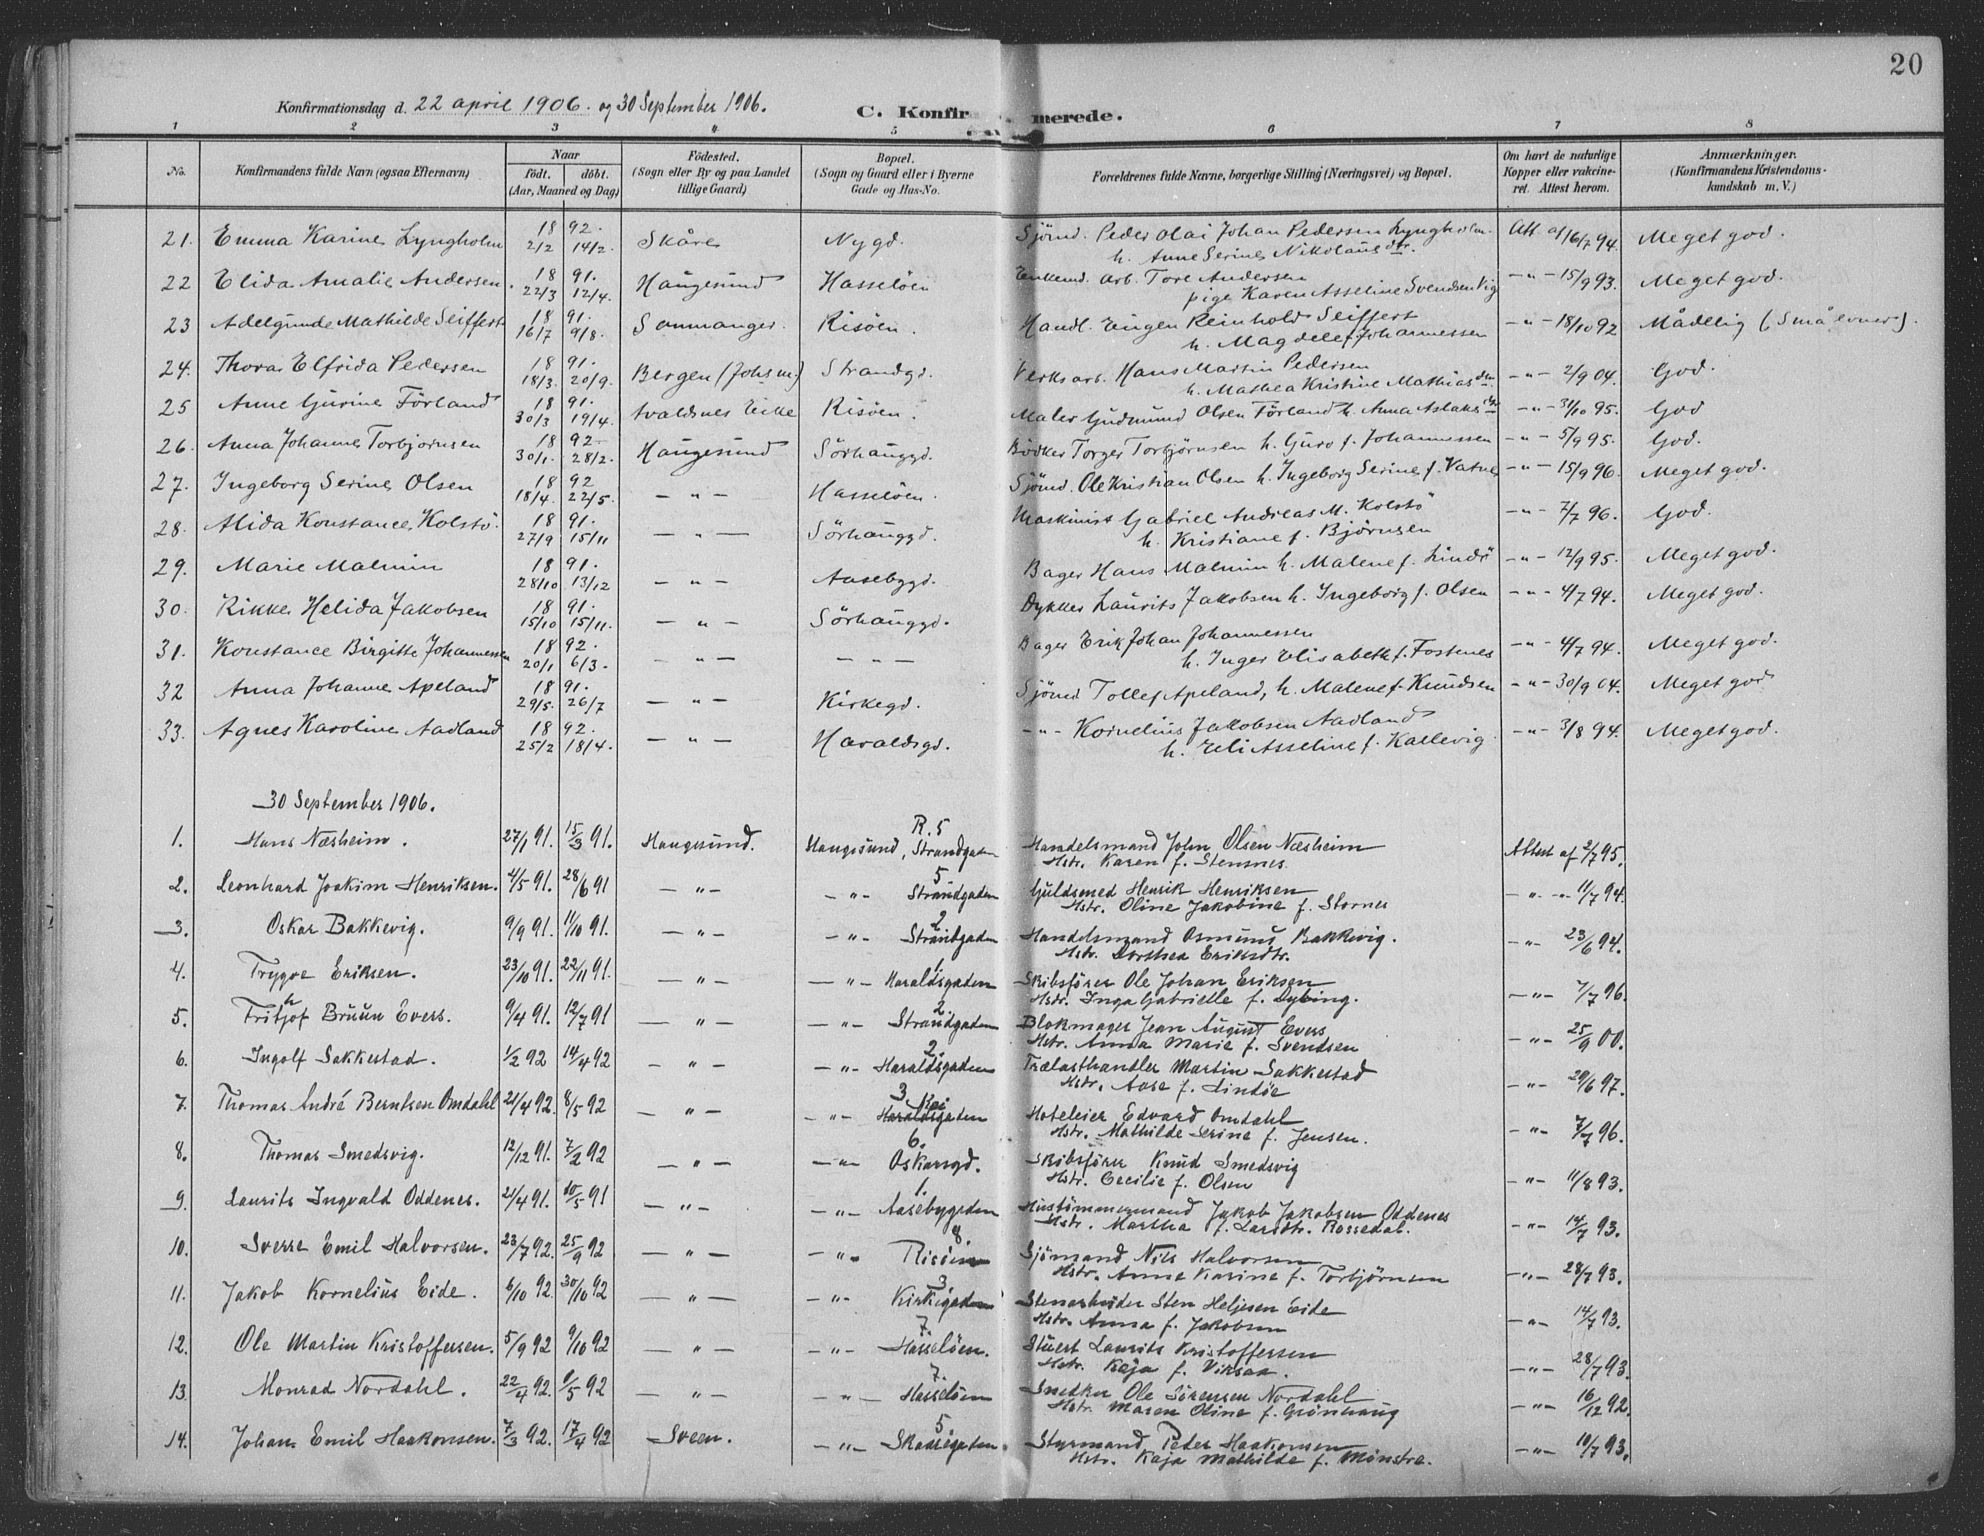 20
Konfirmationsdag d. 22 april 1906. og 30 September 1906.
C. Konfir merede.
1 2 3 4 5 6 7 8
No. Konfirmandens fulde Navn (ogsaa Efternavn) Naar født. døbt. (Aar, Maaned og Dag) Fødested. (Sogn eller By og paa Landet tillige Gaard) Bopæl. (Sogn og Gaard eller i Byerne Gade og Hus-No. Forældrenes fulde Navne, borgerlige Stilling (Næringsvei) og Bopæl. Om havt de naturlige Kopper eller vaccineret. Attest herom. Anmærkninger. (Konfirmandens Kristendomskundskab m. V.)
21. Emma Karine Lyngholm 18 92. 2/2 14/2 Skåre Nygd. Sjömd. Peder Olai Johan Pedersen Lyngholm. Att. af 16/7 94. Meget god.
h. Anne Serine Nikolausdtr.
22 Elida Amalie Andersen. 18 91. 22/3 12/4. Haugesund Hasselöen Enkemd. arb. Tore Andersen -"- 15/9 93. Meget god.
pige Karen Asseline Svendsen Vig
23 Adelgunde Mathilde Seiffert 18 91. 16/7 9/8. Risöen. Handl. Eugen Reinhold Seiffert -"- 18/10 92 Mådelig (Små evner).
h. Magdele f. Johannessen
24. Thora Elfrida Pedersen 18 91. 18/3. 20/9. Bergen (Johs m.) Strandgd. Verksarb. Hans Martin Pedersen -"- 2/9 04. God.
h. Mathea Kristine Mathiasdtr.
25 Anne Gurine Förland 18 91. 30/3 19/4. Avaldsnes Eike Risöen. Maler Gudmund Olsen Förland h. Anna Aslaksdtr -"- 31/10 95. God
26. Anna Johanne Torbjørnsen 18 92- 30/1. 28/2. Haugesund Sörhauggd. Bödker Torger Torbjørnsen h. Guro f. Johannessen -"- 5/9 95. God.
27. Ingeborg Serine Olsen 18 92 18/4. 22/5. -"- Hasselöen. Sjömd. Ole Kristian Olsen h. Ingeborg Serine f. Vatne -"- 15/9 96. Meget god.
28. Alida Konstance Kolstö. 18 91. 27/9 15/11 -"- Sörhauggd. Maskinist Gabriel Andreas M. Kolstö -"- 7/7 96. God.
h. Kristiane f. Bjørnsen
29. Marie Malmin 18 91. 28/10 13/12 -"- Aasebygd. Bager Hans Malmin h. Malene f. Lindö -"- 12/9 95. Meget god.
30. Rikke Helida Jakobsen 18 91. 15/10 15/11. -"- Sörhauggd. Dykker Laurits Jakobsen h. Ingeborg f. Olsen -"- 4/7 94. Meget god.
31. Konstance Birgitte Johannessen 18 92. 20/1 6/3. -"- -"- Bager Erik Johan Johannessen -"- 4/7 94. Meget god.
h. Inger Elisabeth f. Fostenes
32 Anna Johanne Apeland 18 91. 29/5. 26/7 -"- Kirkegd. Sjömd Tollef Apeland, h. Malene f. Knudsen -"- 30/9 04. Meget god
33. Agnes Karoline Aadland 18 92. 25/2 18/4. -"- Haraldsgd. -"- Kornelius Jakobsen Aadland -"- 3/8 94. Meget god.
h. Eli Asseline f. Kallevig
30 September 1906.
1. Hans Næsheim. 27/1 91. 15/3 91. Haugesund. R. 5 Haugesund, Strandgaden Handelsmand John Olsen Næsheim Attest af 2/7 95.
Hstr. Karen f. Stensnes.
2. Leonhard Joakim Henriksen. 4/5 91. 28/6 91 -"- -"- 5 Strandgaden Guldsmed Henrik Henriksen "- -" 11/7 94.
Hstr. Oline Jakobine f. Stornes
3. Oskar Bakkevig. 9/9 91. 11/10 91. -"- -"- 2 Strandgaden Handelsmand Osmund Bakkevig. -"- 23/6 94.
Hstr. Dorthea Eriksdtr.
4. Trygve Eriksen. 23/10 91. 22/11 91. -"- -"- 1. Haraldsgaden Skibsfører Ole Johan Eriksen -"- 7/7 96.
Hstr. Inga Gabrielle f. Dybing.
5. Frithjof Bruun Evers. 9/4 91. 12/7 91 -"- -"- 2. Strandgaden Blokmager Jean August Evers -"- 25/9 00.
Hstr. Anna Marie f. Svendsen
6. Ingolf Sakkestad. 1/2 92 14/4 92 -"- -"- 2. Haraldsgaden Trælasthandler Martin Sakkestad -"- 29/6 97.
Hstr. Aase f. Lindøe
7. Thomas André Berntsen Omdahl 21/4 92. 8/5 92 -"- -"- 3. Kai Haraldsgaden Hoteleier Edvard Omdahl -"- 7/7 96.
Hstr. Mathilde Serine f. Jensen.
8. Thomas Smedsvig. 12/12 91. 7/2 92 -"- -"- 6. Oskarsgd. Skibsfører Knud Smedsvig -"- 11/8 93.
Hstr. Cecilie f. Olsen
9. Laurits Ingvald Oddenes. 21/4 91. 10/5 91 -"- -"- 1. Aasebygaden Hustømmermand Jakob Jakobsen Oddenes -"- 14/7 93.
Hstr. Martha f. Larsdtr. Rossedal.
10. Sverre Emil Halvorsen. 23/7 92. 25/9 92 -"- -"- 8. Risöen Sjömand Nils Halvorsen -"- 28/7 93.
Hstr. Anne Karine f. Torbjörnsen
11. Jakob Kornelius Eide. 6/10 92. 30/10 92 -"- -"- 3 Kirkegaden Stenarbeider Sten Heljesen Eide -"- 14/7 93.
Hstr. Anna f. Jakobsen
12. Ole Martin Kristoffersen. 5/9 92 9/10 92 -"- -"- 7. Hasselöen. Stuert Laurits Kristoffersen -"- 28/7 93.
Hstr. Kaja f. Viksaa.
13. Monrad Nordahl. 22/4 92. 9/5 92 -"- -"- 7. Hasselöen Snedker Ole Sörensen Nordahl -"- 16/12 92.
Hstr. Maren Oline f. Grönhaug
14. Johan Emil Haakonsen. 7/3 92. 17/4 92 Sveen. -"- 5 Skaaregaten Styrmand Peder Haakonsen -"- 10/7 93.
Hstr. Kaja Mathilde f. Mönstre.